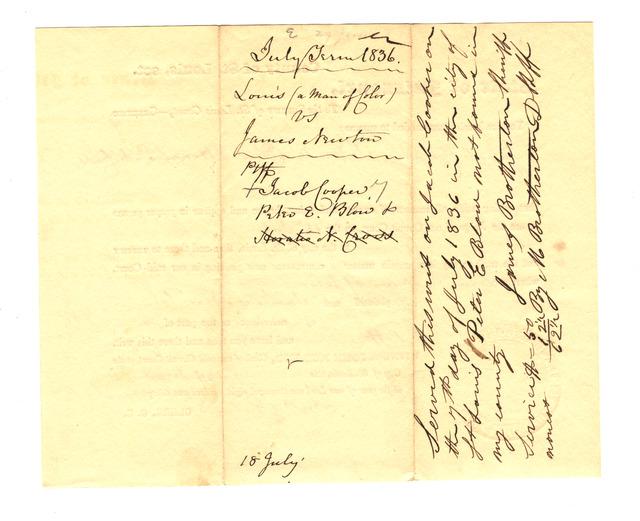 July Term 1836.
Louis (a Man of Color)
vs
James Newton
Pltff
+ Jacob Cooper 7
Peter E. Blow &
Horatio N. Cross
18 July
Served this writ on Jacob Cooper on
the 7th day of July 1836 in the city of
St Louis Peter E Blow not found in
my county James Brotherton Sheriff
Service $ = 50 By M Brotherton D Shff
nonest 12½
62½